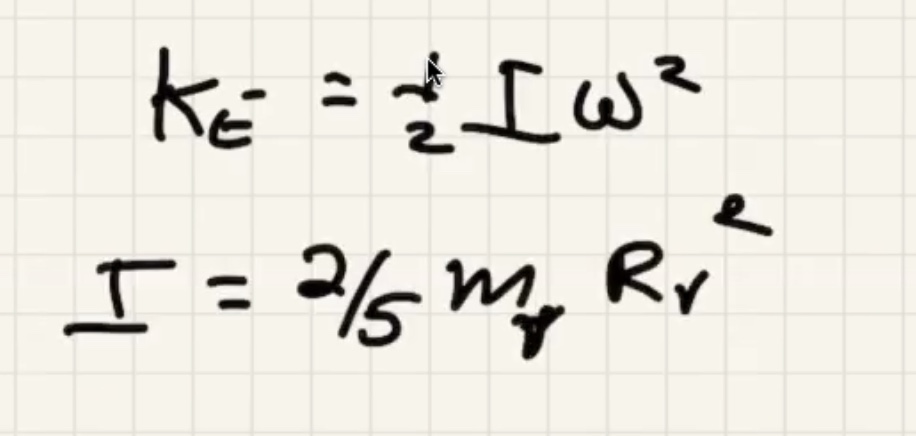 K_E = 1/2 I ω²
I = 2/5 m_r R_r²